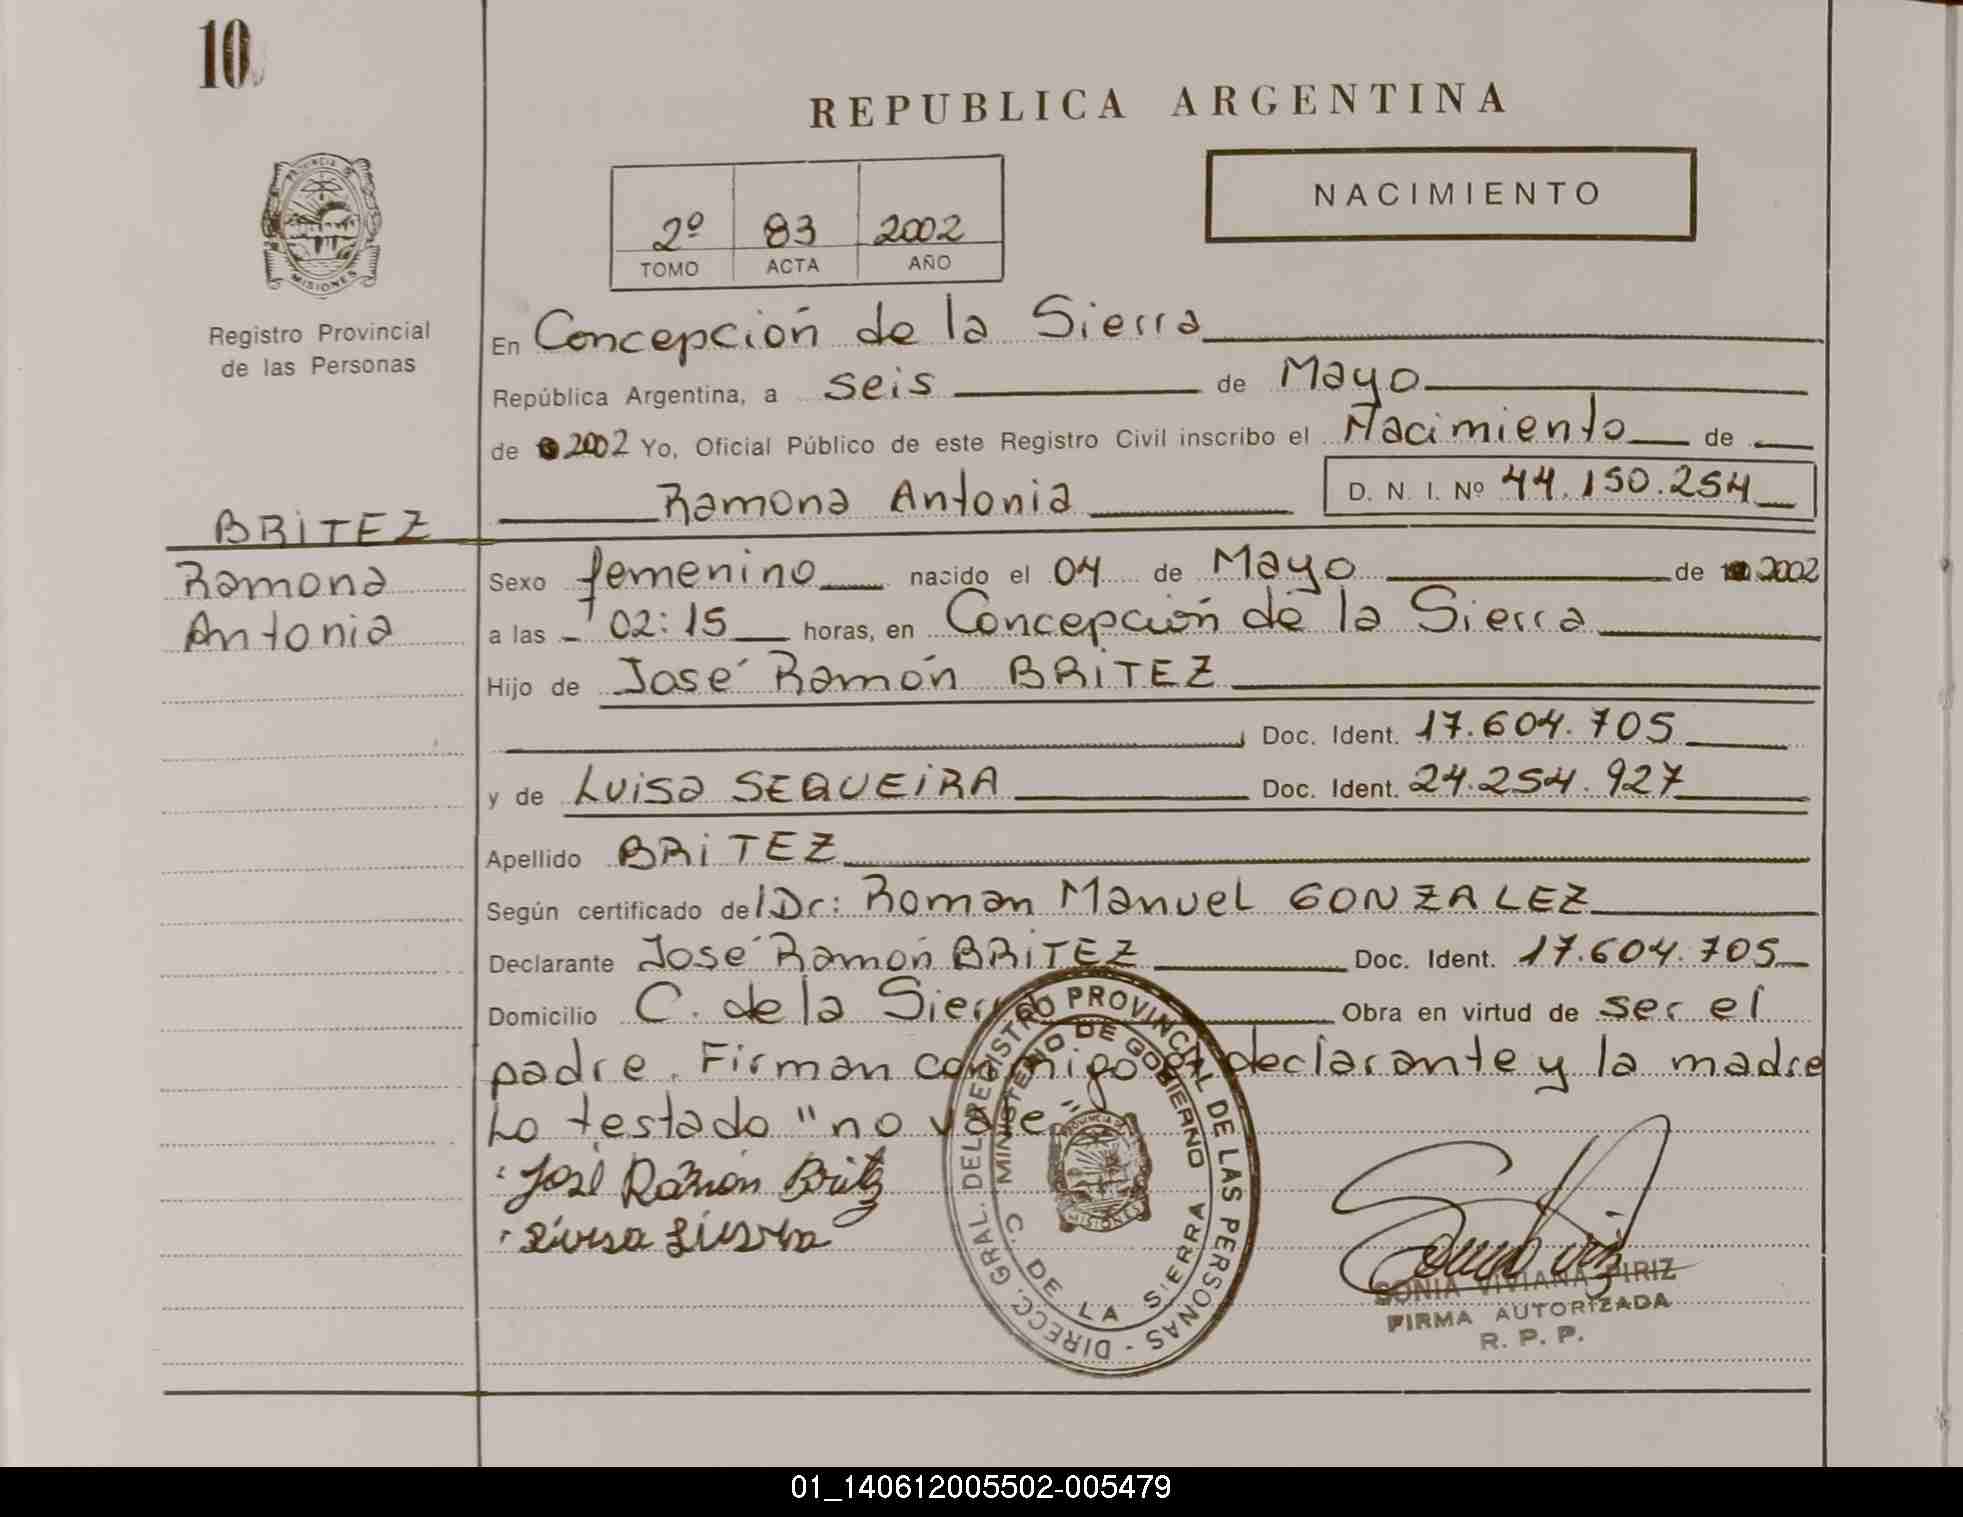 10
PROVINCIA DE
MISIONES
Registro Provincial
de las Personas
BRITEZ
Ramona
Antonia
REPUBLICA ARGENTINA
2º 83 2002
TOMO ACTA AÑO
NACIMIENTO
En Concepción de la Sierra
República Argentina, a seis de Mayo
de 2002 Yo, Oficial Público de este Registro Civil inscribo el Nacimiento de
Ramona Antonia D. N. I. Nº 44.150.254
Sexo femenino nacido el 04 de Mayo de 2002
a las 02:15 horas, en Concepción de la Sierra
Hijo de José Ramón BRITEZ
Doc. Ident. 17.604.705
y de Luisa SEQUEIRA Doc. Ident. 24.254.927
Apellido BRITEZ
Según certificado del Dr: Roman Manuel GONZALEZ
Declarante José Ramón BRITEZ Doc. Ident. 17.604.705
Domicilio C. de la Sierra Obra en virtud de ser el
padre. Firman conmigo el declarante y la madre
Lo testado "no vale"
José Ramón Britez
DIRECC. GRAL. DEL REGISTRO PROVINCIAL DE LAS PERSONAS -
MINISTERIO DE GOBIERNO
C. DE LA SIERRA
MISIONES
SONIA VIVIANA PIRIZ
FIRMA AUTORIZADA
R. P. P.
01_140612005502-005479